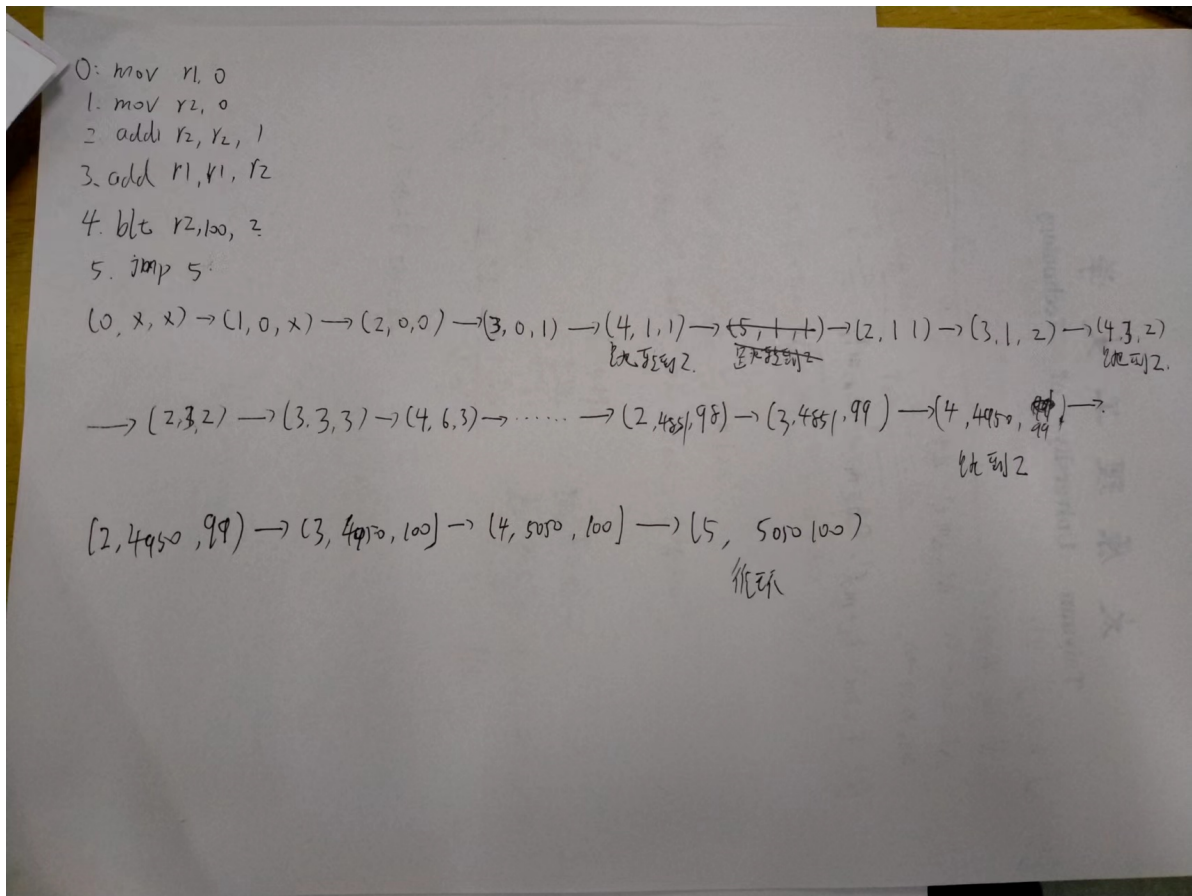 0: mov r1, 0
1. mov r2, 0
2 addi r2, r2, 1
3. add r1, r1, r2
4. blt r2, 100, 2
5. jmp 5
(0, x, x) → (1, 0, x) → (2, 0, 0) → (3, 0, 1) → (4, 1, 1) → (5, 1, 1) → (2, 1 1) → (3, 1, 2) → (4, 3, 2)
到2. 到2.
→ (2, 3, 2) → (3, 3, 3) → (4, 6, 3) → ...... → (2, 4851, 98) → (3, 4851, 99) → (4, 4950, 99) →
到2
(2, 4950, 99) → (3, 4950, 100) → (4, 5050, 100) → (5, 5050 100)